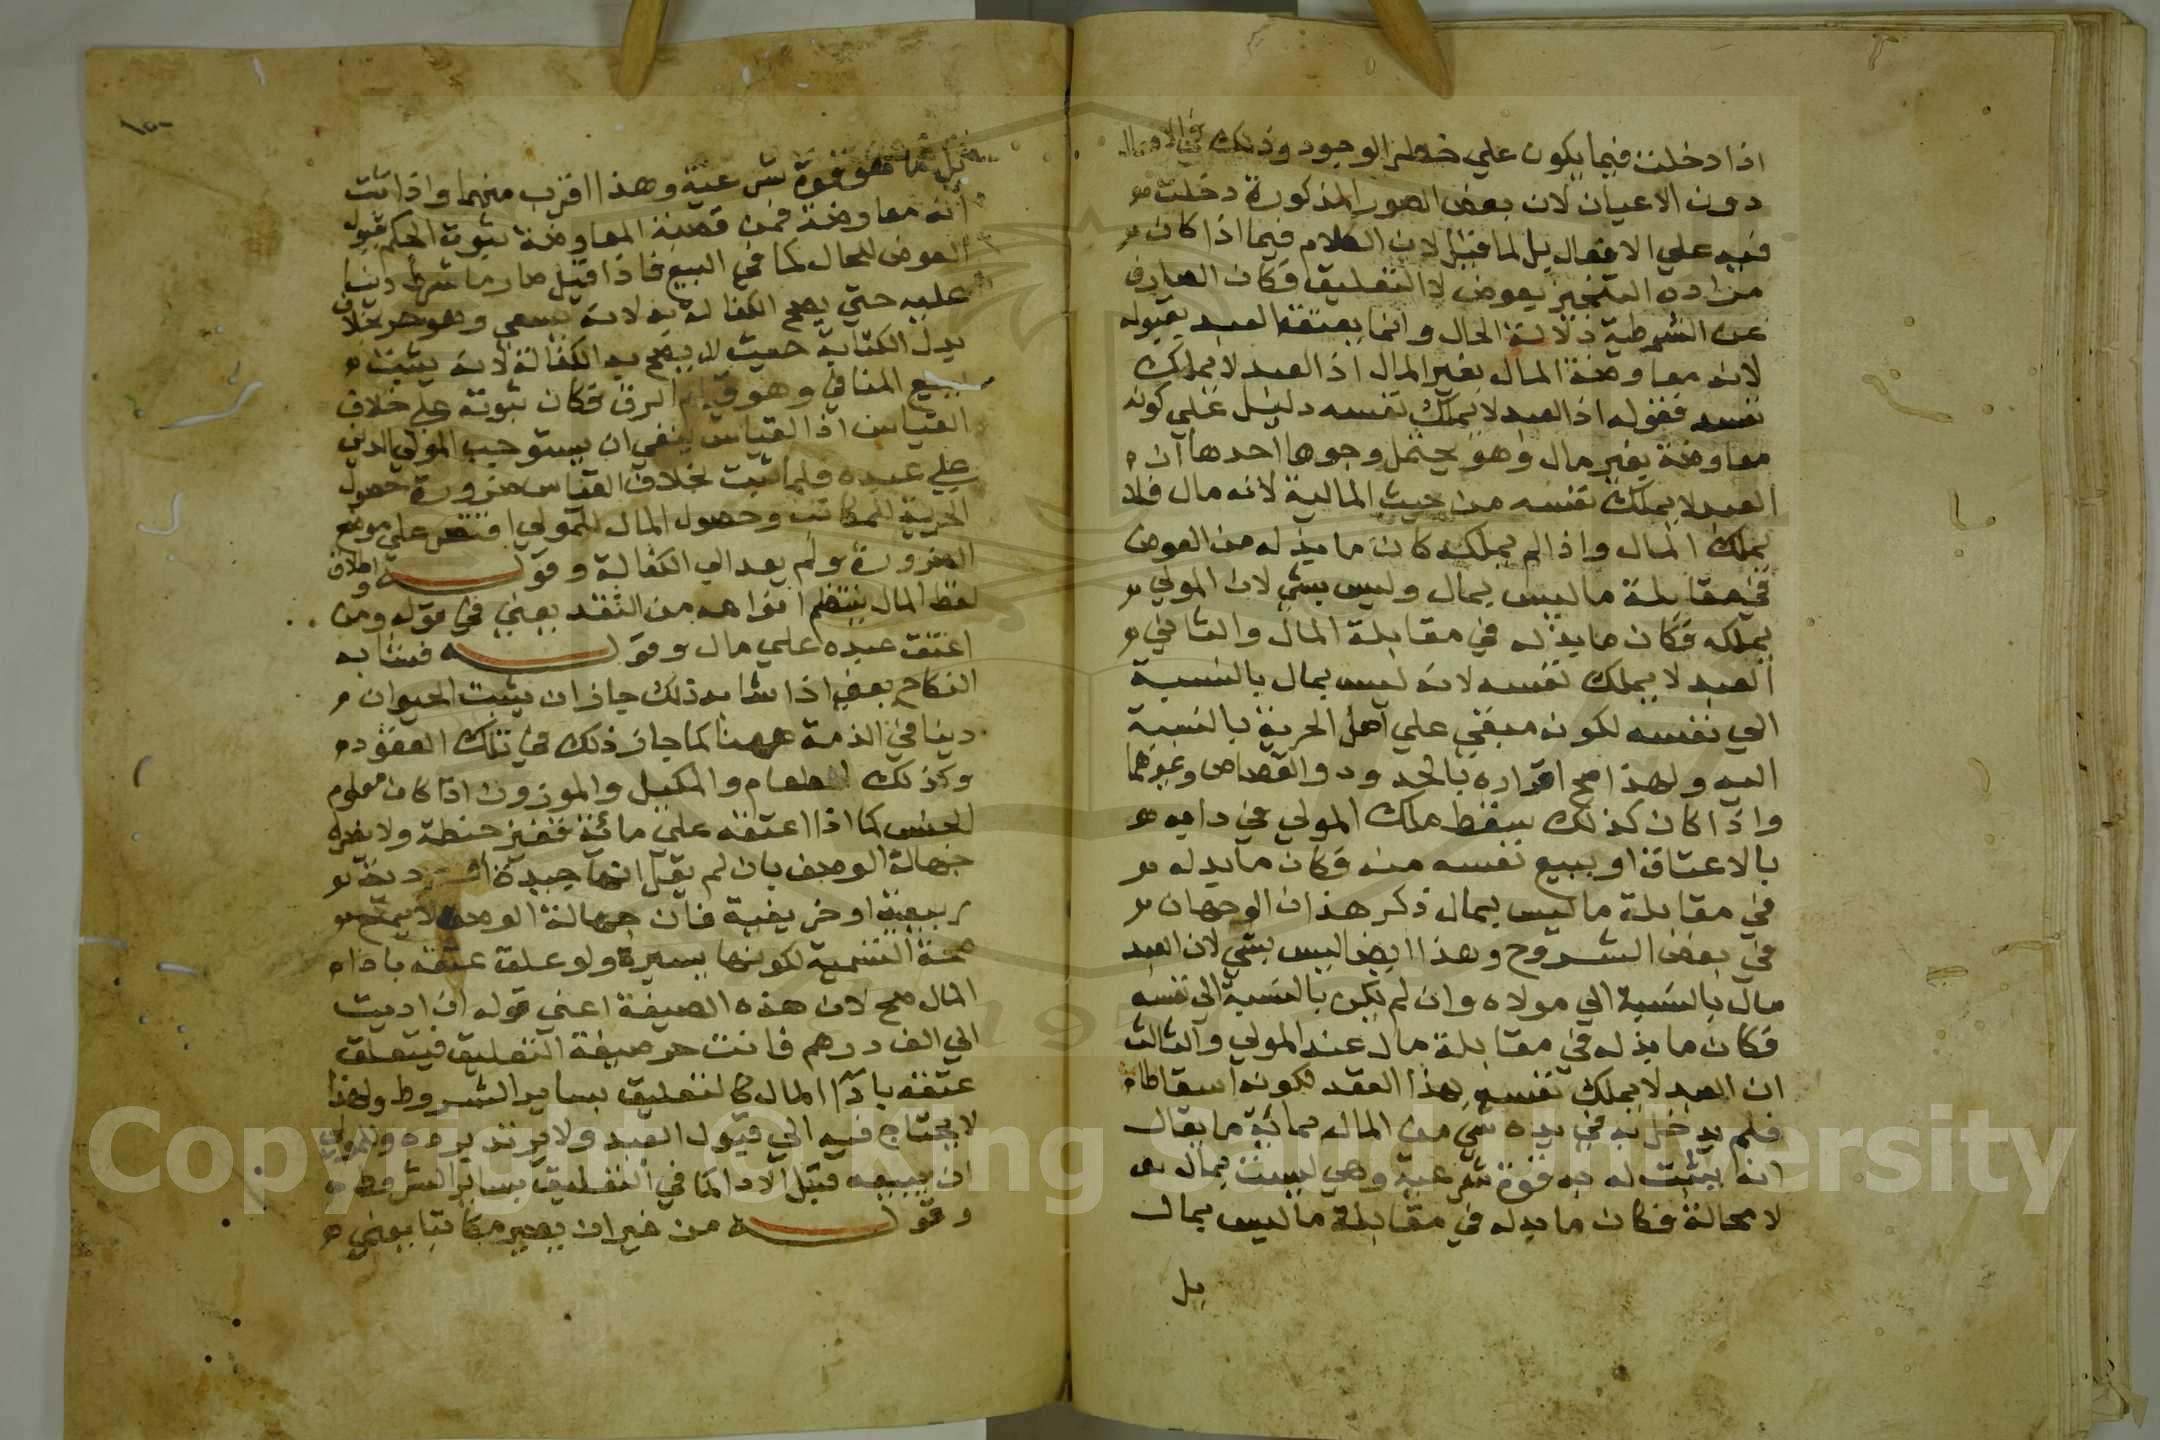 اذا دخلت فيما يكون علي خطر الوجود وذلك في الافعال
دون الاعيان لان بعض الصور المذكورة دخلت
فيه علي الافعال بل لما قيل لان الكلام فيما اذا كان
مراده التنجيز بعوض لا التعليق فكان الصارف
عن الشرطية دلالة الحال وانما يعتقه العبد بقبوله
لانه معاوضة المال بغير المال اذ العبد لا يملك
نفسه فقوله اذ العبد لا يملك نفسه دليل علي كونه
معاوضة بغير مال وهو يحتمل وجوها احدها ان
العبد لا يملك نفسه من حيث المالية لانه مال فلا
يملك المال واذا لم يملكه كان ما بذله من العوض
في مقابلة ما ليس بمال وليس بشي لان المولي
يملكه فكان ما بذله في مقابلة المال والثاني
العبد لا يملك نفسه لانه ليس بمال بالنسبة
الي نفسه لكونه مبقي علي اصل الحرية بالنسبة
اليه ولهذا صح اقراره بالحدود والقصاص وغيرهما
واذا كان كذلك يسقط ملك المولي عن ذاته
بالاعتاق او ببيع نفسه منه فكان ما بذله
في مقابلة ما ليس بمال ذكر هذان الوجهان
في بعض الشروح وهذا ايضا ليس بشي لان العبد
مال بالنسبة الي مولاه وان لم يكن بالنسبة الي نفسه
فكان ما بذله في مقابلة مال عند المولي والثالث
ان العبد لا يملك نفسه بهذا العقد لكونه اسقاطا
فلم يدخل به في يده شي من المال بماية ما يقال
انه يثبت له به قوة شرعية وهي ليست بمال
لا محالة فكان ما بذله في مقابلة ما ليس بمال
بل
بل ما هو قوة شرعية وهذا اقرب منهما واذا ثبت
انه معاوضة فمن قضية المعاوضة ثبوت الحكم بقبول
العوض للحال كما في البيع فاذا قبل صار ما شرط دينا
عليه حتي يصح الكفالة به لانه يسعي وهو حر بخلاف
بدل الكتابة حيث لا يصح به الكفالة لانه يثبت
مع المنافي وهو قيام الرق فكان ثبوته علي خلاف
القياس اذ القياس ينفي ان يستوجب المولي الدين
علي عبده فلما ثبت بخلاف القياس ضرورة حصول
الحرية للمكاتب وحصول المال للمولي اقتصر علي موضع
الضرورة ولم يعد الي الكفالة وقوله واطلاق
لفظ المال ينتظم انواعه من النقد يعني في قوله ومن
اعتق عبده علي مال وقوله فشابه
النكاح يعني اذا شابه ذلك جاز ان يثبت الحيوان
دينا في الذمة ههنا كما جاز ذلك في تلك العقود
وكذلك الطعام والمكيل والموزون اذا كان معلوم
الجنس كما اذا اعتقه علي مائة قفيز حنطة ولا يضره
جهالة الوصف بان لم يقل انها جيدة او ردية
ربيعية او خريفية فان جهالة الوصف لا يمنع
صحة التسمية لكونها يسيرة ولو علق عتقه باداء
المال صح لان هذه الصيغة اعني قوله ان اديت
الي الف درهم فانت حر صيغة التعليق فيتعلق
عتقه باداء المال كالتعليق بساير الشروط ولهذا
لا يحتاج فيه الي قبول العبد ولا يرتد برده وللمولي
ان يبيعه قبل الاداء كما في التعليق بساير الشروط
وقوله من غير ان يصير مكاتبا يعني
Copyright © King Saud University